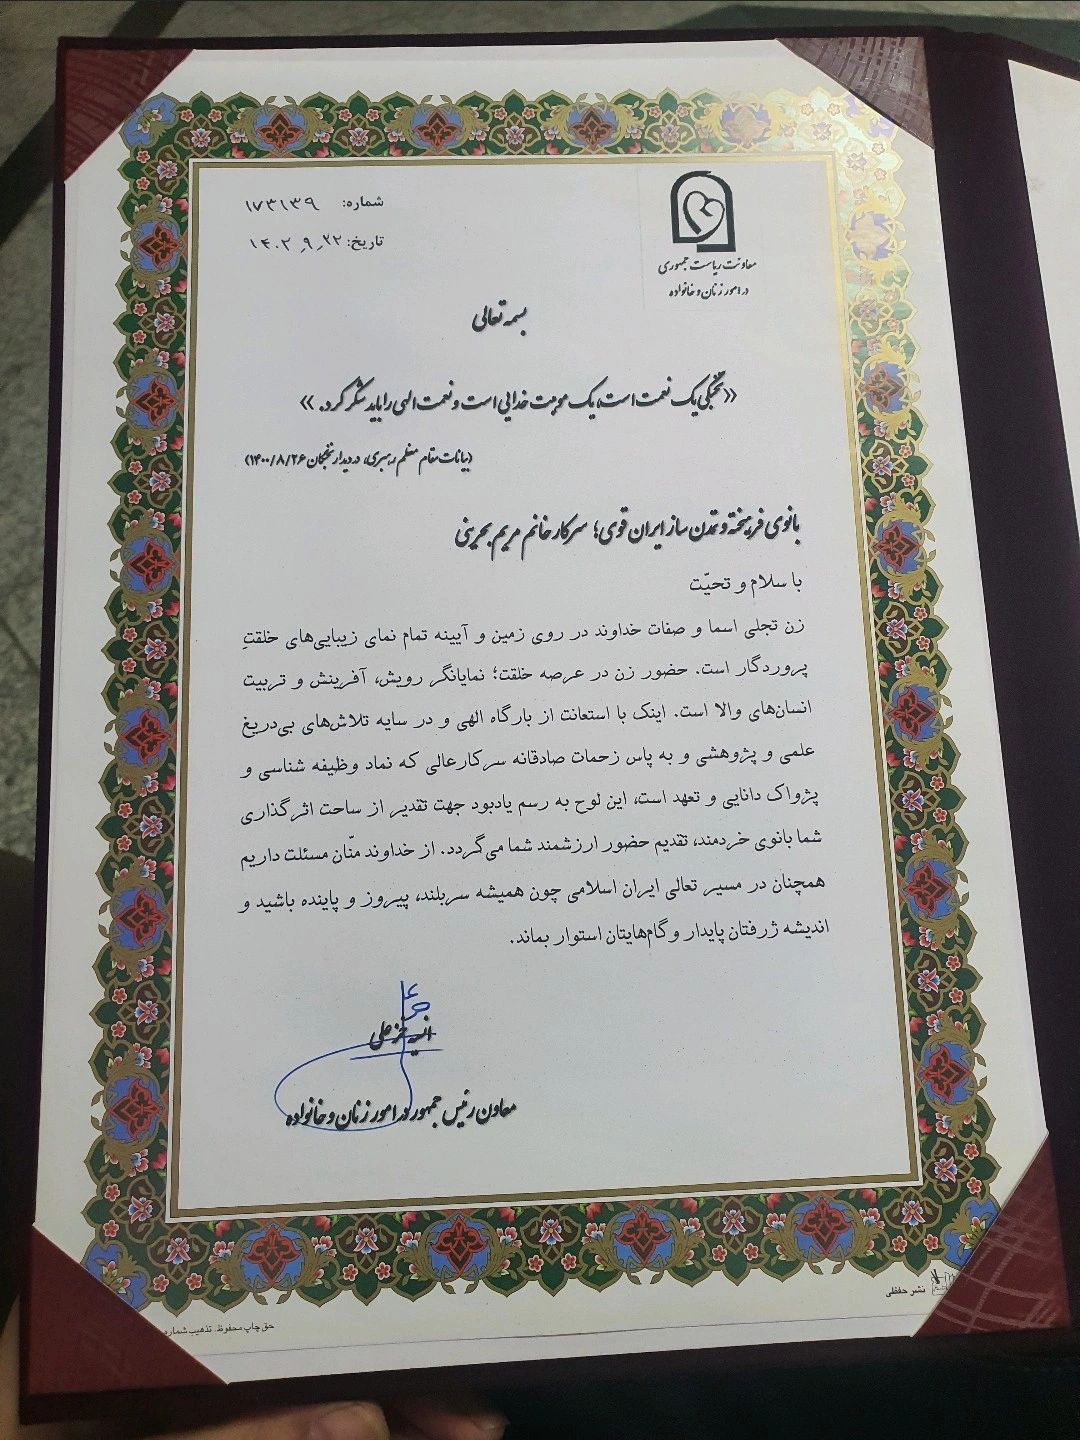 معاونت ریاست جمهوری
در امور زنان و خانواده
شماره: ۱۷۳۱۳۹
تاریخ: ۱۴۰۲_۹_۲۲
بسمه تعالی
«نخبگی یک نعمت است، یک موهبت خدایی است و نعمت الهی را باید شکر کرد.»
(بیانات مقام معظم رهبری، در دیدار نخبگان ۱۴۰۰/۸/۲۶)
بانوی فرهیخته و تمدن ساز ایران قوی؛ سرکار خانم مریم بحرینی
با سلام و تحیّت
زن تجلی اسما و صفات خداوند در روی زمین و آیینه تمام نمای زیبایی‌های خلقتِ
پروردگار است. حضور زن در عرصه خلقت؛ نمایانگر رویش، آفرینش و تربیت
انسان‌های والا است. اینک با استعانت از بارگاه الهی و در سایه تلاش‌های بی‌دریغ
علمی و پژوهشی و به پاس زحمات صادقانه سرکارعالی که نماد وظیفه شناسی و
پژواک دانایی و تعهد است، این لوح به رسم یادبود جهت تقدیر از ساحت اثرگذاری
شما بانوی خردمند، تقدیم حضور ارزشمند شما می‌گردد. از خداوند منّان مسئلت داریم
همچنان در مسیر تعالی ایران اسلامی چون همیشه سربلند، پیروز و پاینده باشید و
اندیشه ژرفتان پایدار و گام‌هایتان استوار بماند.
انسیه خزعلی
معاون رئیس جمهور در امور زنان و خانواده
نشر حفظی
حق چاپ محفوظ. تذهیب شماره